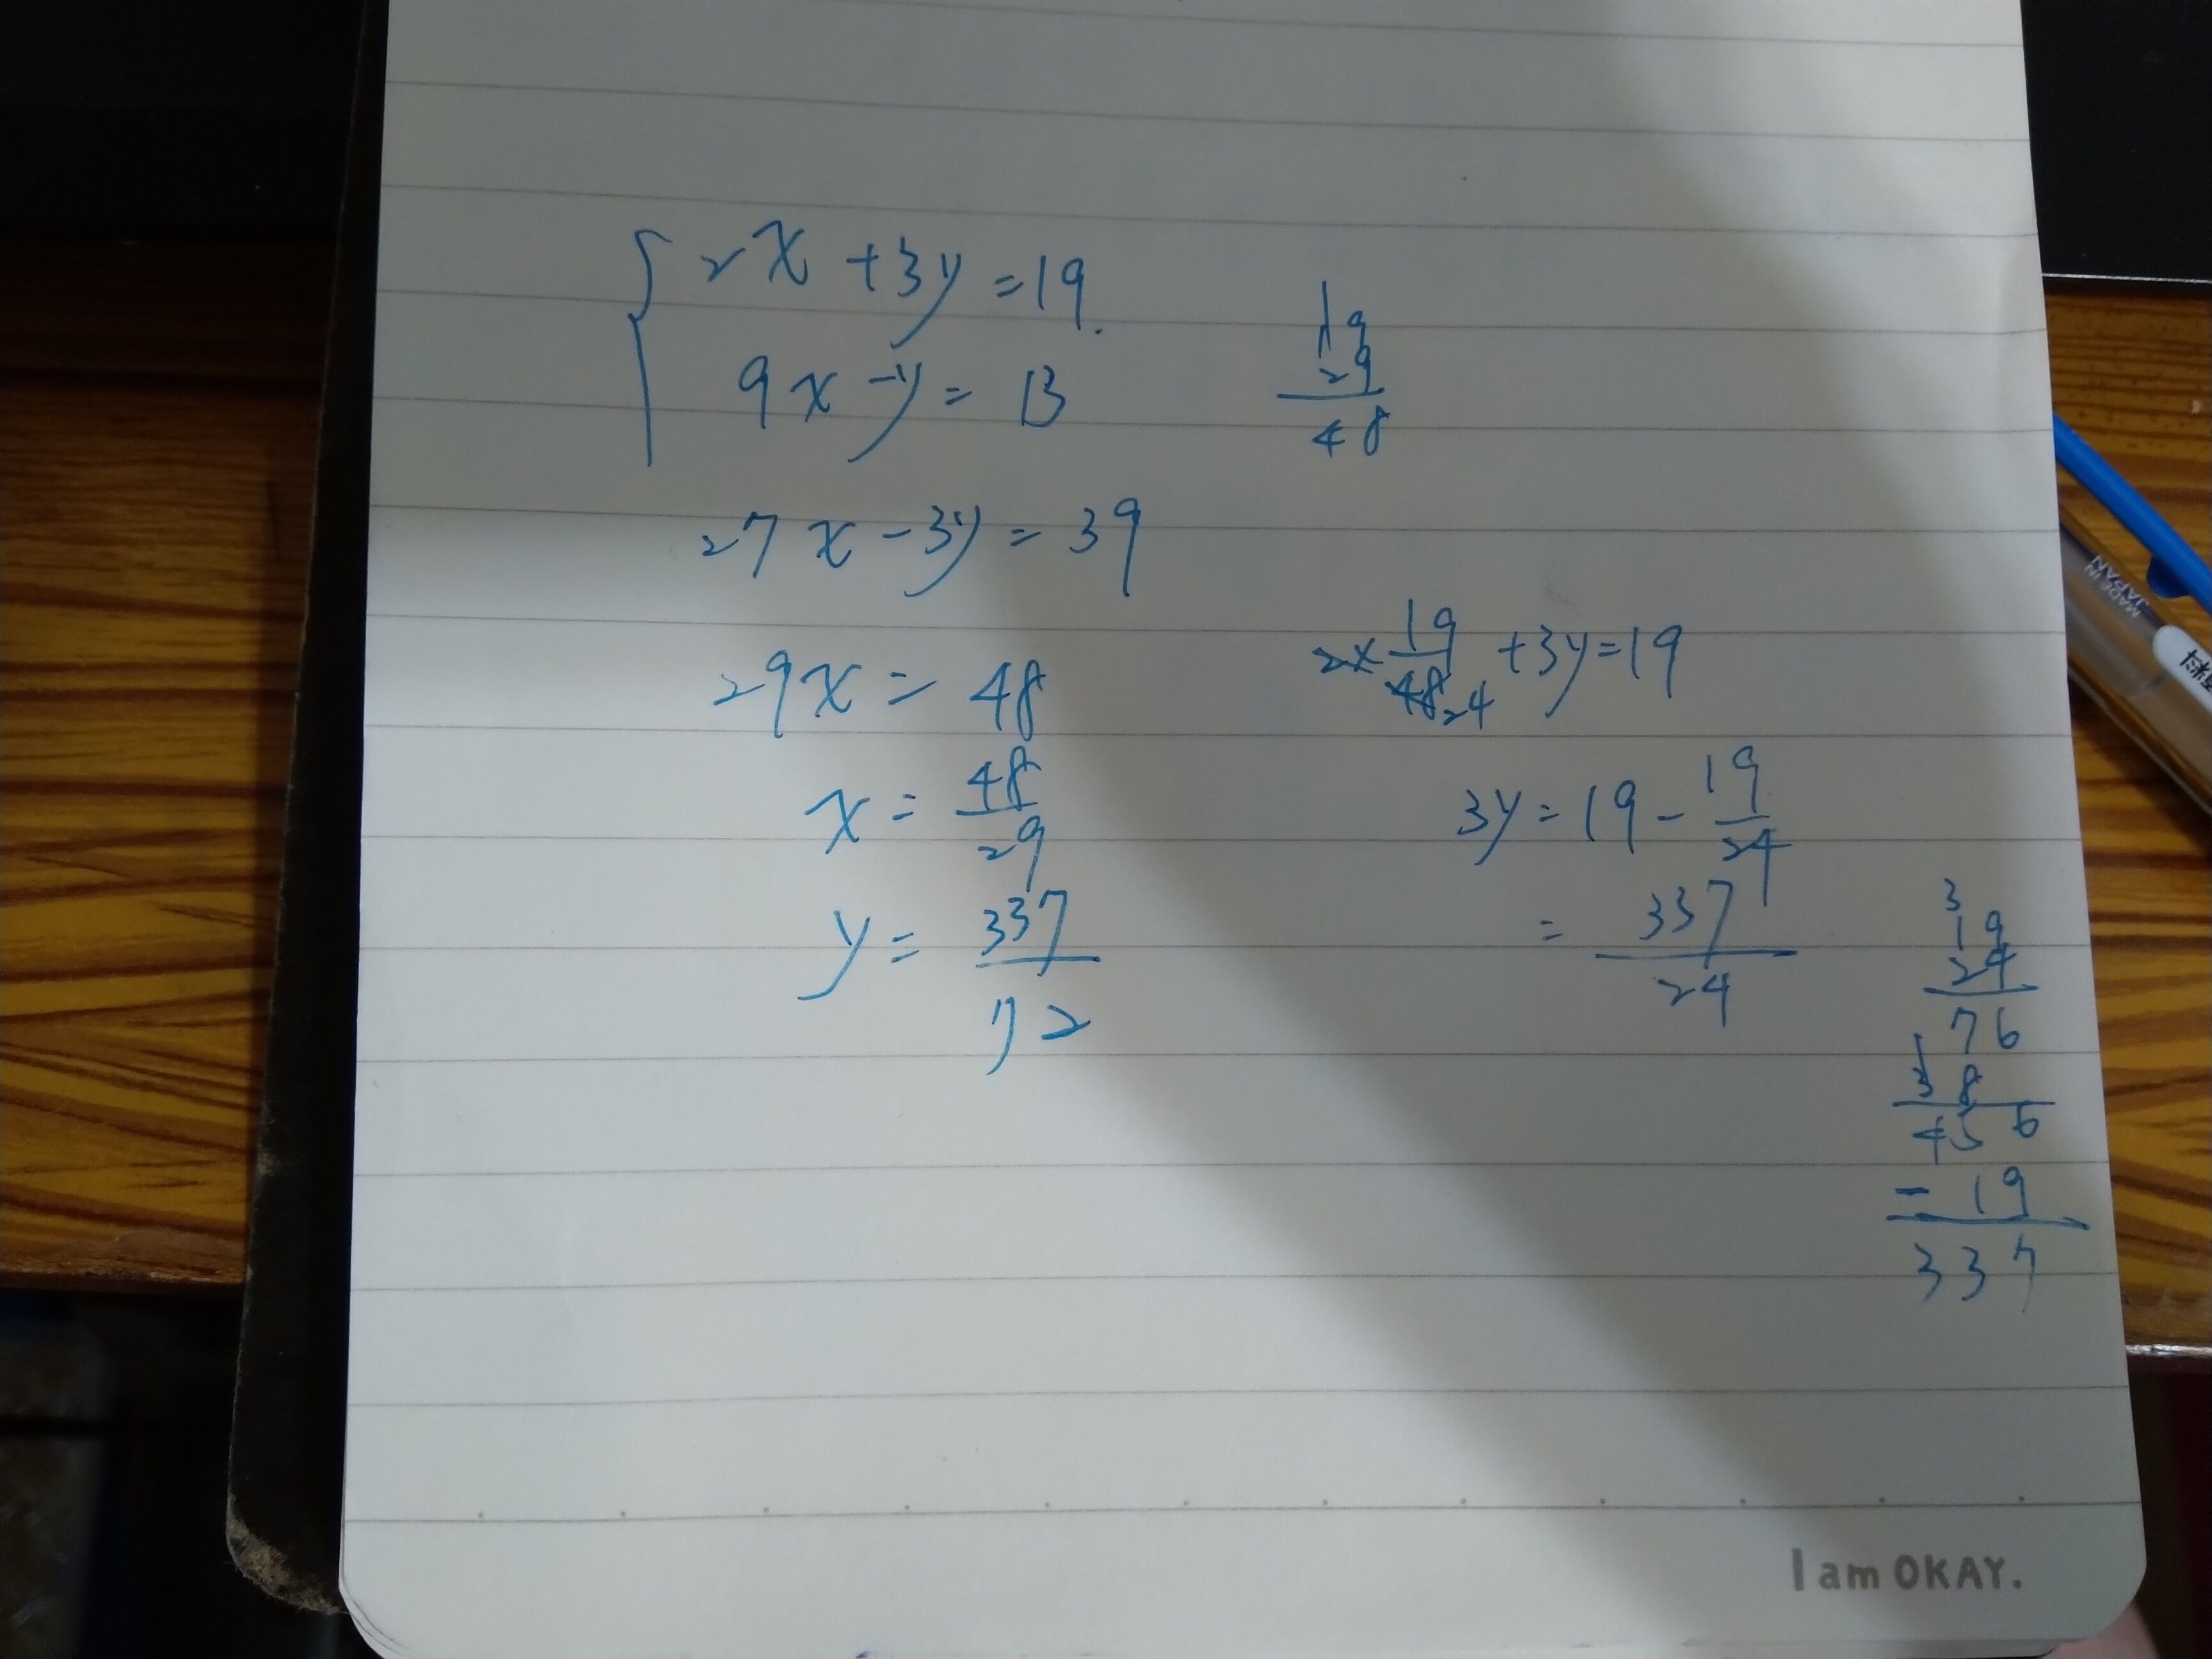 2x + 3y = 19.
9x - y = 13
19
29
48
27x - 3y = 39
29x = 48
x = 48/29
y = 337/72
2 × 19/48 24 + 3y = 19
3y = 19 - 19/24
= 337/24
3
19
24
76
1
38
456
- 19
337
I am OKAY.
MADE IN
JAPAN